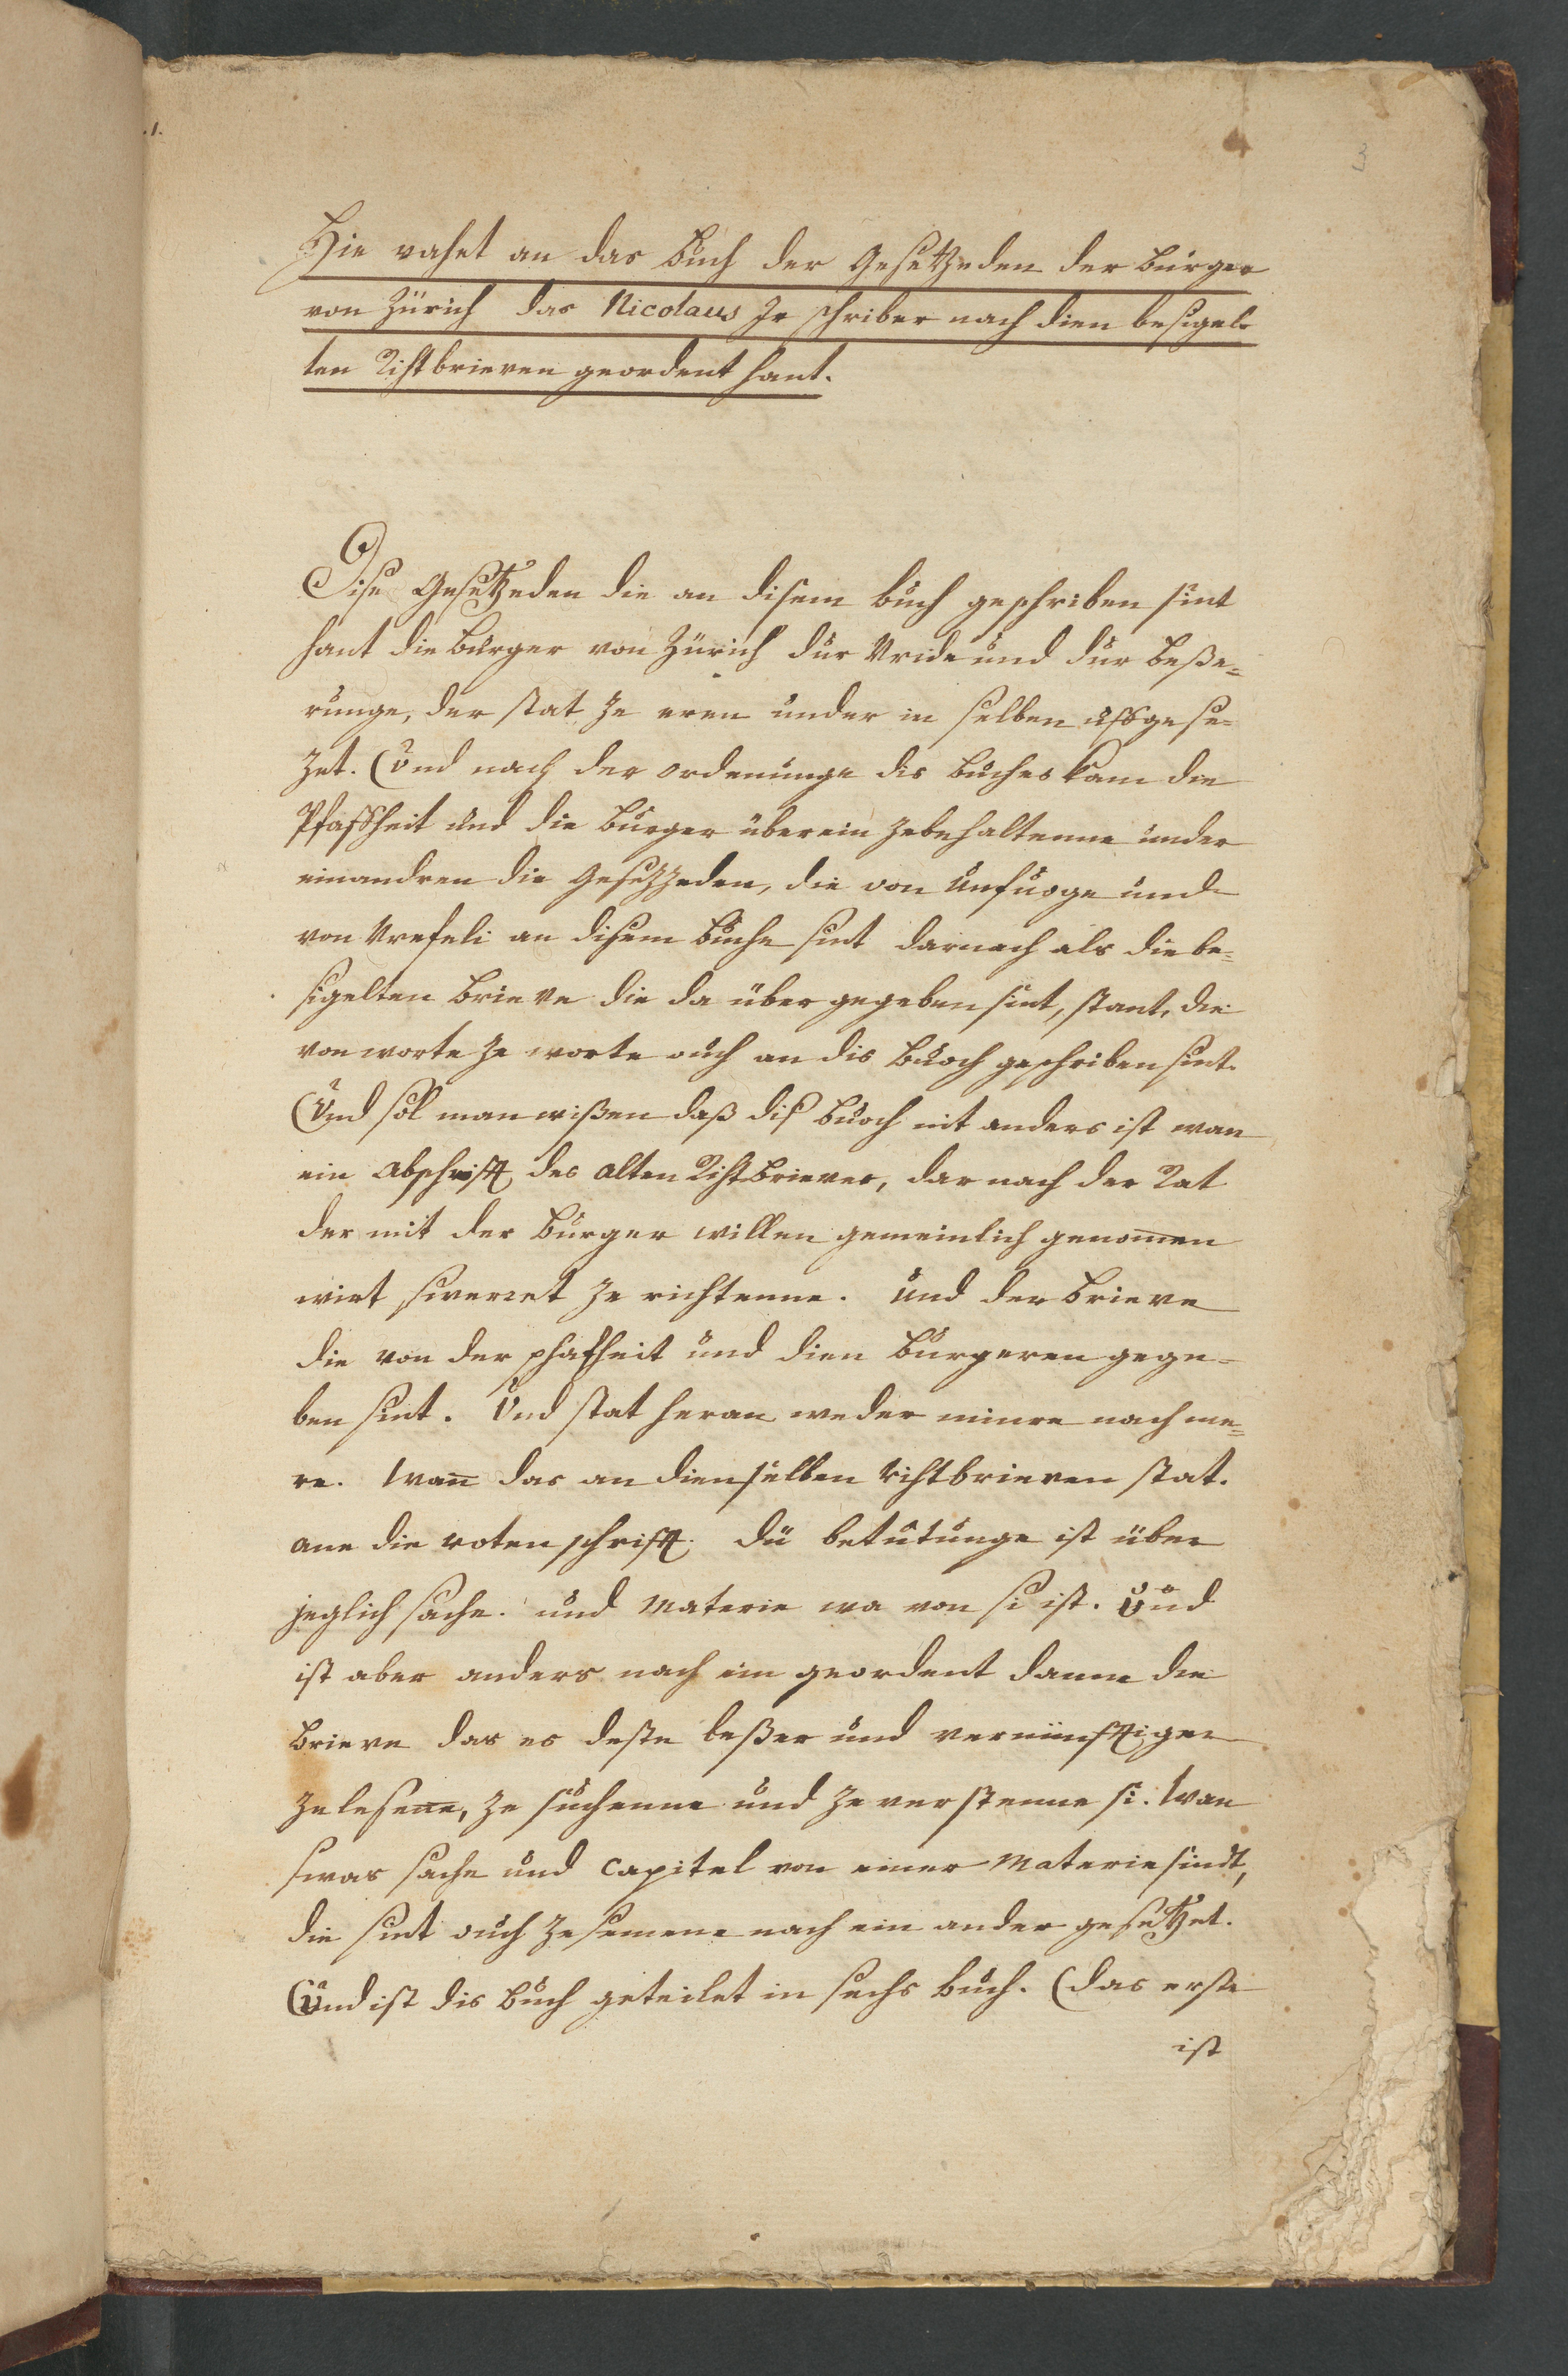 .1.
3
Hie vahet an das Buch der Gesetzeden der Burger
von Zürich das Nicolaus Ir schriber nach dien besigel-
ten Rihtbrieven geordent hant.
Dise Gesetzeden die an disem Buch geschriben sint
hant die Burger von Zürich dur Vride und dur Beße=
runge, der stat ze eren under in selben ufgese=
zet. Und nach der ordenunge dis Buches kam die
Pfafheit und die Burger überein zebehaltenne under
einandren die Gesezzeden, die von Unfuoge und
von Vrefeli an disem Buche sint darnach als die be=
sigelten Brieve die da über gegeben sint, stant, die
von worte ze worte ouch an dis Buoch geschriben sint.
Und sol man wißen daß dis Buoch nit anders ist wan
ein Abschrift des alten Rihtbrieves, dar nach der Rat
der mit der Burger willen gemeinlich genomen
wirt swerret ze richtenne. Und der Brieve
die von der phafheit und dien Burgeren gege=
ben sint. Und stat heran weder minre nach me=
re. Wann das an dien selben rihtbrieven stat.
ane die roten schrift. dü betutunge ist über
jeglich sache. und Materie wa von si ist. Und
ist aber anders nach im geordent danne die
Brieve das es deste beßer und vernünftiger
ze lesene, ze suchenne und ze verstenne si. Wan
swas sache und Capitel von einer Materie sindt,
die sint ouch zesemene nach ein ander gesetzet.
Und ist dis Buch geteilet in sechs Buch. (das erste
ist